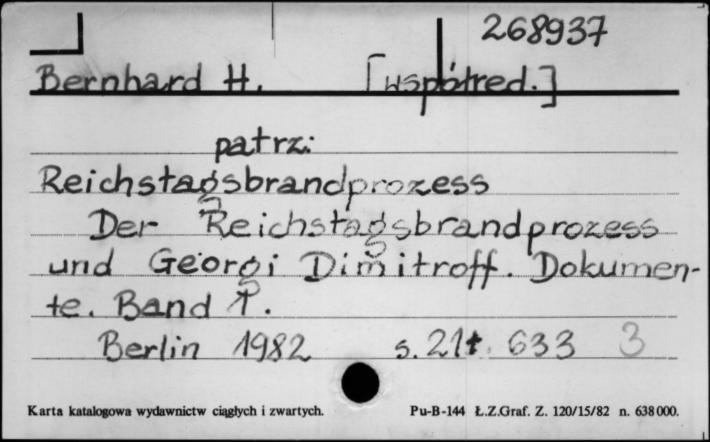 268937
Bernhard H. [współred.]
patrz:
Reichstagsbrandprozess
Der Reichstagsbrandprozess
und Georgi Dimitroff. Dokumen-
te. Band 1.
Berlin 1982 s. 21+ 633 3
Karta katalogowa wydawnictw ciągłych i zwartych. Pu-B-144 Ł.Z.Graf. Z. 120/15/82 n. 638000.